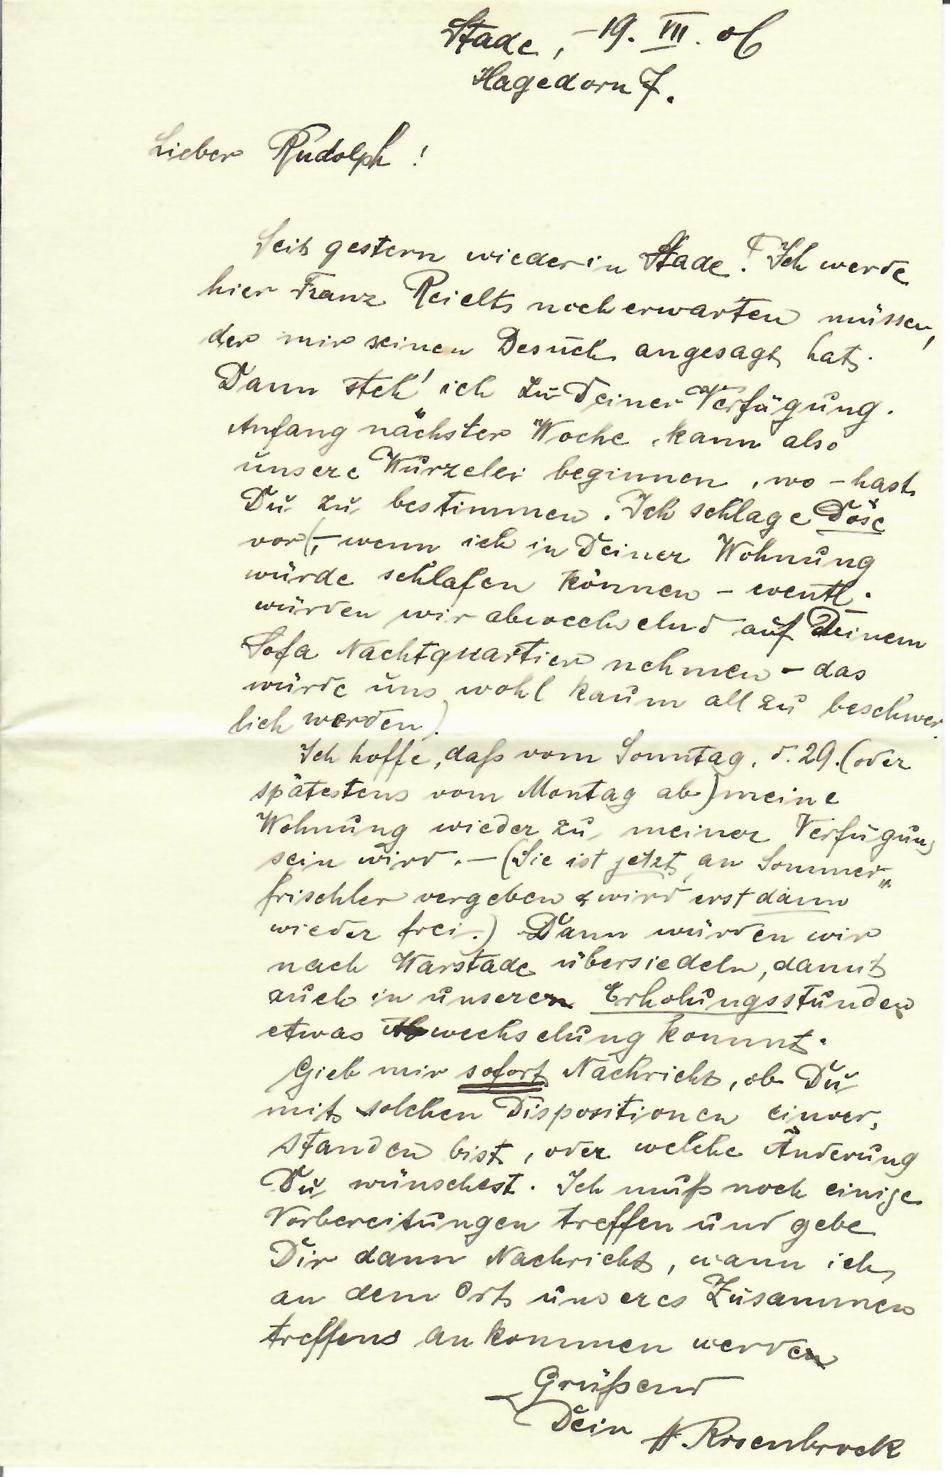 Stade, 19. VII. 06
Hagedorn 7.
Lieber Rudolph!
Seit gestern wieder in Stade! Ich werde
hier Franz Reielts noch erwarten müssen,
der mir seinen Besuch angesagt hat.
Dann steh' ich zu Deiner Verfügung.
Anfang nächster Woche kann also
unsere Wurzelei beginnen, wo – hast
Du zu bestimmen. Ich schlage Döse
vor (– wenn ich in Deiner Wohnung
würde schlafen können – eventl.
würden wir abwechselnd auf Deinem
Sofa Nachtquartier nehmen – das
würde uns wohl kaum all zu beschwer
lich werden).
Ich hoffe, daß vom Sonntag, d. 29. (oder
spätestens vom Montag ab) meine
Wohnung wieder zu meiner Verfügung
sein wird. – (Sie ist jetzt an Sommer„
frischler vergeben & wird erst dann
wieder frei.) Dann würden wir
nach Warstade übersiedeln, damit
auch in unseren Erholungsstunden
etwas Abwechselung kommt.
Gieb mir sofort Nachricht, ob Du
mit solchen Dispositionen einver,
standen bist, oder welche Änderung
Du wünschest. Ich muß noch einige
Vorbereitungen treffen und gebe
Dir dann Nachricht, wann ich
an dem Ort unseres Zusammen
treffens ankommen werde
Grüßend
Dein H. Rosenbrock